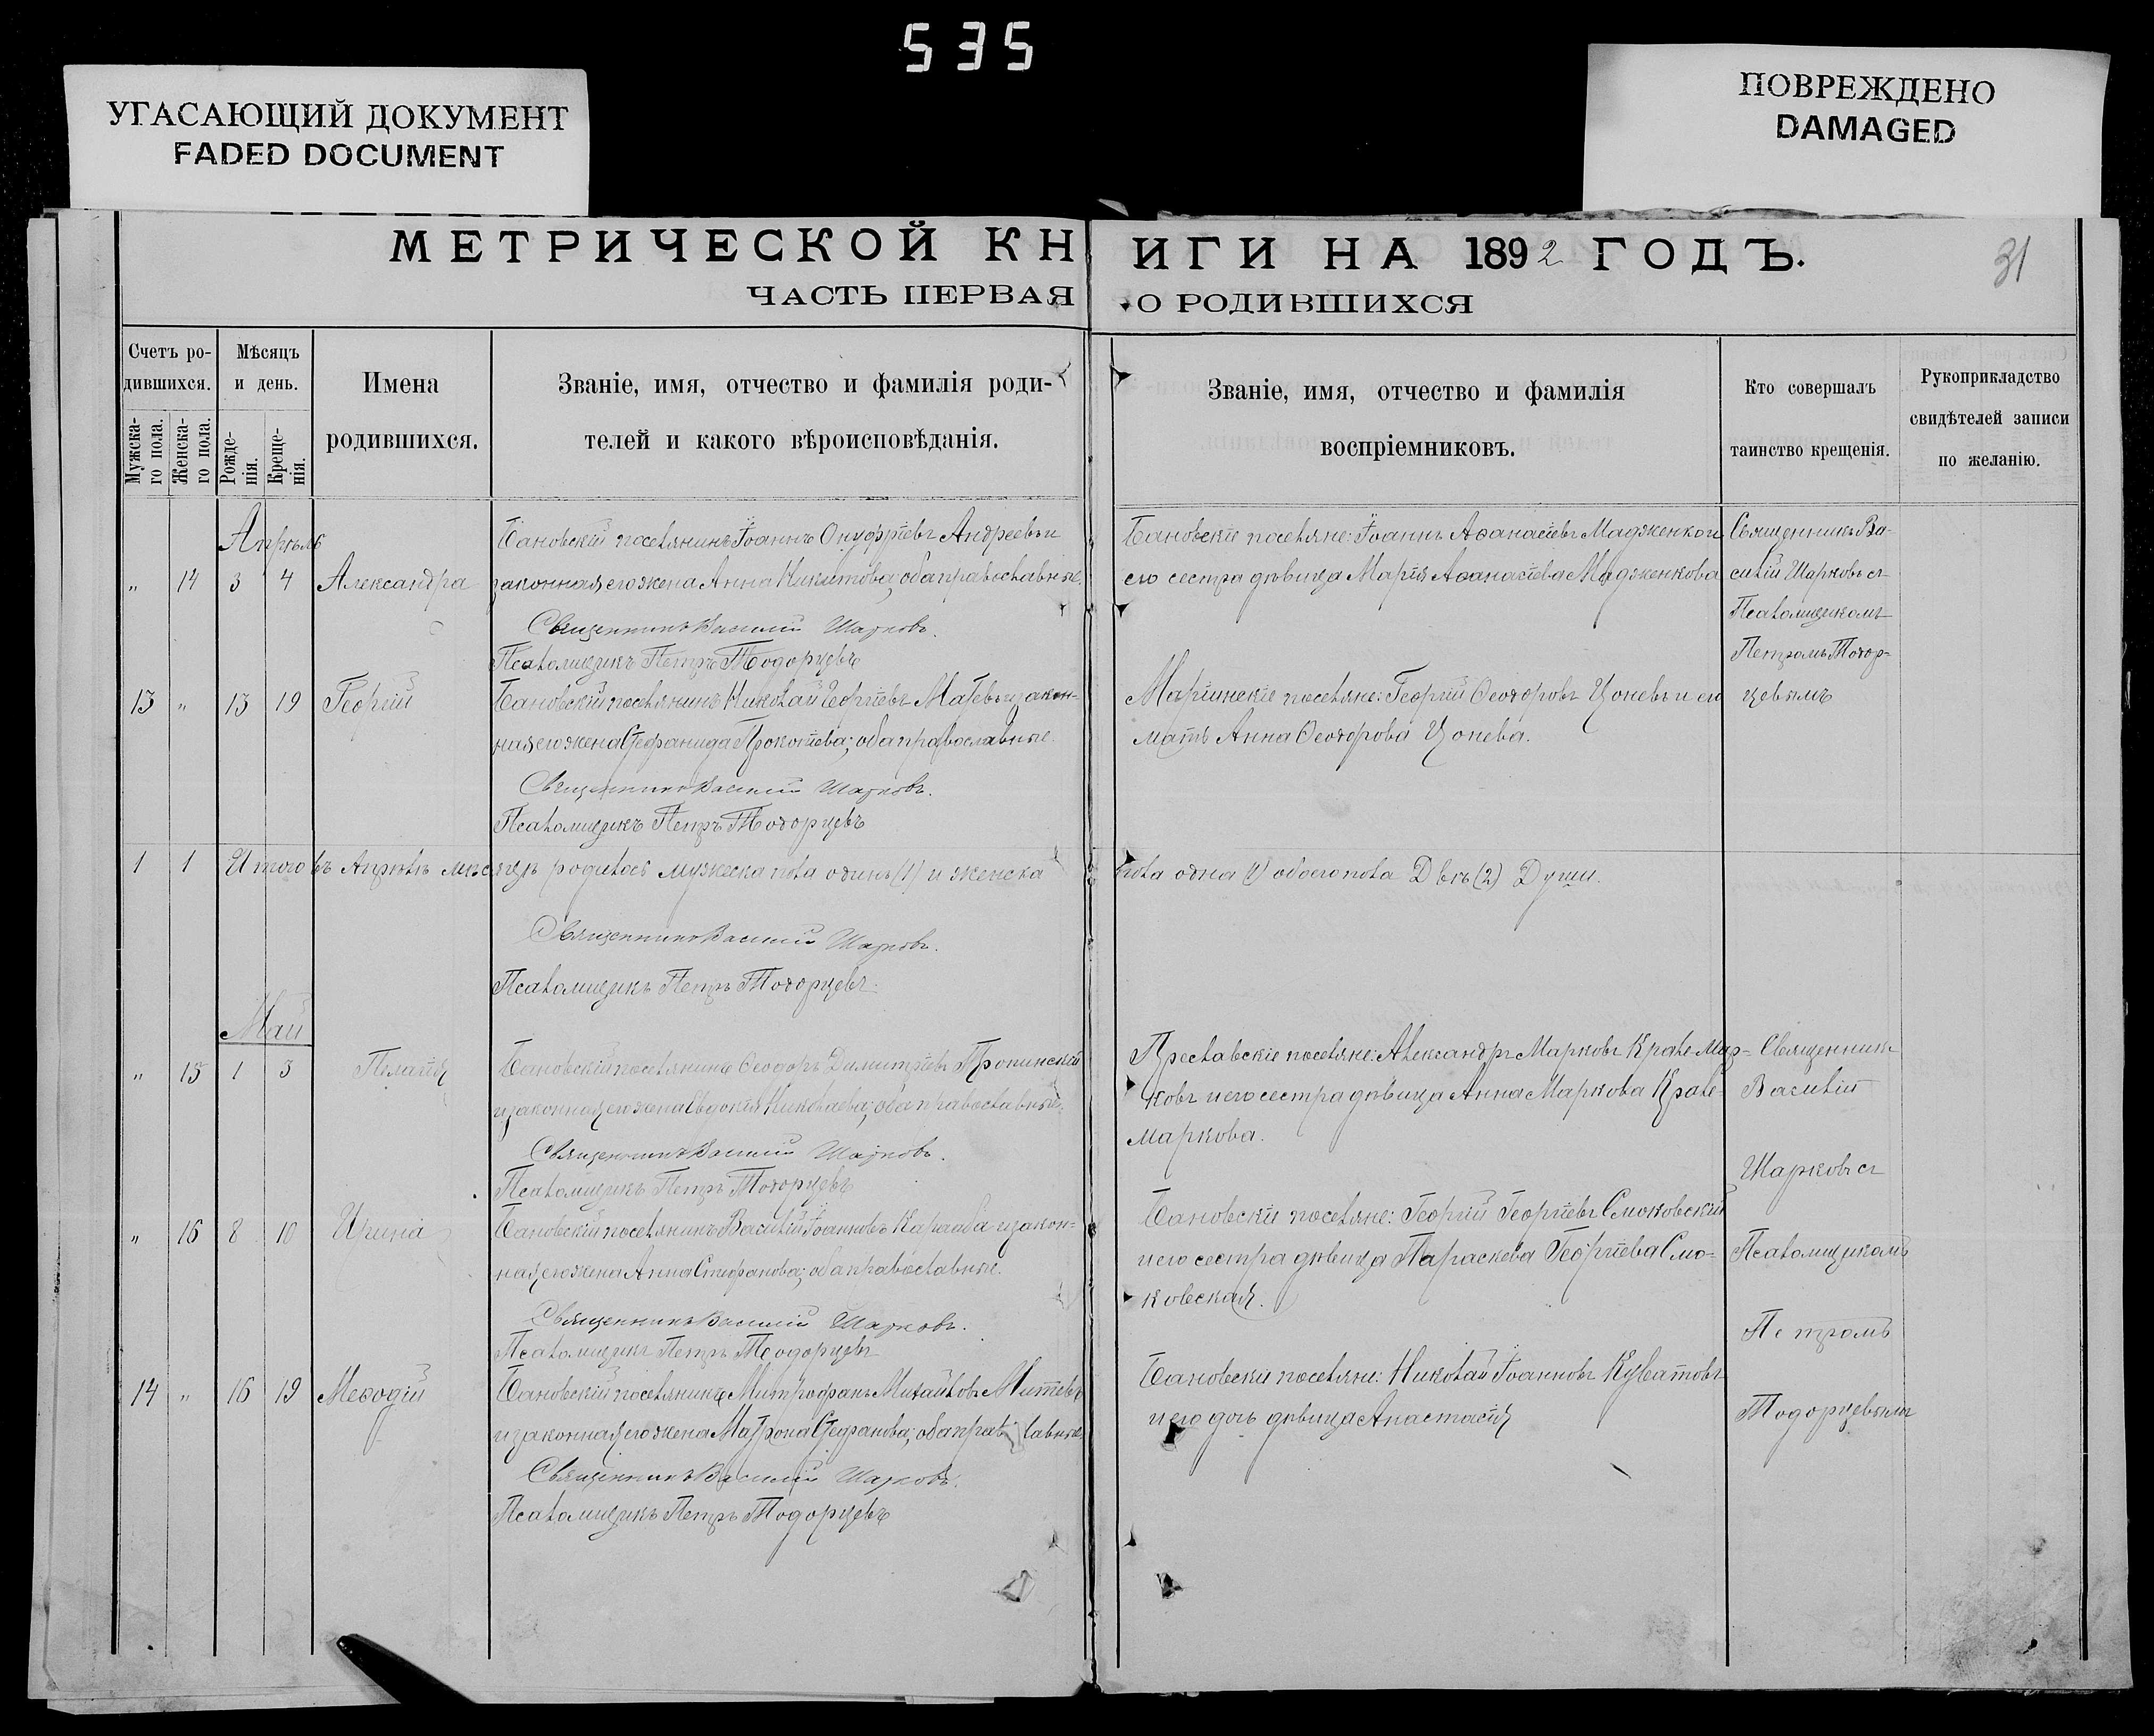 535
УГАСАЮЩИЙ ДОКУМЕНТ
FADED DOCUMENT
ПОВРЕЖДЕНО
DAMAGED
МЕТРИЧЕСКОЙ КН
ИГИ НА 1892 ГОДЪ.
31
ЧАСТЬ ПЕРВАЯ
О РОДИВШИХСЯ
Счетъ ро-
дившихся.
Мужска-
го пола.
Женска-
го пола.
Мѣсяцъ
и день.
Рожде-
нія.
Креще-
нія.
Имена
родившихся.
Званіе, имя, отчество и фамилія роди-
телей и какого вѣроисповѣданія.
Званіе, имя, отчество и фамилія
воспріемниковъ.
Кто совершалъ
таинство крещенія.
Рукоприкладство
свидѣтелей записи
по желанію.
Апрѣль
„ 14 3 4 Александра
Бановскій поселянинъ Іоаннъ Онуфріевъ Андреевъ и
законная его жена Анна Никитова; оба православные.
Священникъ Василій Шарковъ.
Псаломщикъ Петръ Тодорцевъ
Бановскіе поселяне: Іоаннъ Аѳанасіевъ Мадженковъ
его сестра дѣвица Марія Аѳанасіева Мадженкова
Священникъ Ва-
силій Шарковъ съ
Псаломщикомъ
Петромъ Тодор-
цевымъ
13 „ 13 19 Георгій
Бановскій поселянинъ Николай Георгіевъ и закон-
ная его жена Стефанида Прокопіева; оба православные.
Священникъ Василій Шарковъ.
Псаломщикъ Петръ Тодорцевъ
Маріинскіе поселяне: Георгій Ѳеодоровъ Цоневъ и его
мать Анна Ѳеодорова Цонева.
1 1 Итого въ Апрѣлѣ мѣсяцѣ родилось мужеска пола одинъ (1) и женска
пола одна (1) обоего пола Двѣ (2) Души.
Священникъ Василій Шарковъ.
Псаломщикъ Петръ Тодорцевъ.
Май
„ 15 1 3 Пелагія
Бановскій поселянинъ Ѳеодоръ Димитріевъ
и законная его жена Евдокія Николаева; оба православные.
Священникъ Василій Шарковъ.
Псаломщикъ Петръ Тодорцевъ
Преславскіе поселяне: Александръ Марковъ Крале-Мар-
ковъ и его сестра дѣвица Анна Маркова Крале-
Маркова.
Священникъ
Василій
Шарковъ съ
Псаломщикомъ
Петромъ
Тодорцевымъ
„ 16 8 10 Ирина
Бановскій поселянинъ Василій Іоанновъ и закон-
ная его жена Анна Стефанова; оба православные.
Священникъ Василій Шарковъ.
Псаломщикъ Петръ Тодорцевъ
Бановскіе поселяне: Георгій Георгіевъ Смоковскій
и его сестра дѣвица Параскева Георгіева Смо-
ковская.
14 „ 16 19 Меѳодій
Бановскій поселянинъ Митрофанъ Михайловъ Митевъ
и законная его жена Матрона Стефанова; оба православные.
Священникъ Василій Шарковъ.
Псаломщикъ Петръ Тодорцевъ
Бановскіе поселяне: Николай Іоанновъ
и его дочь дѣвица Анастасія